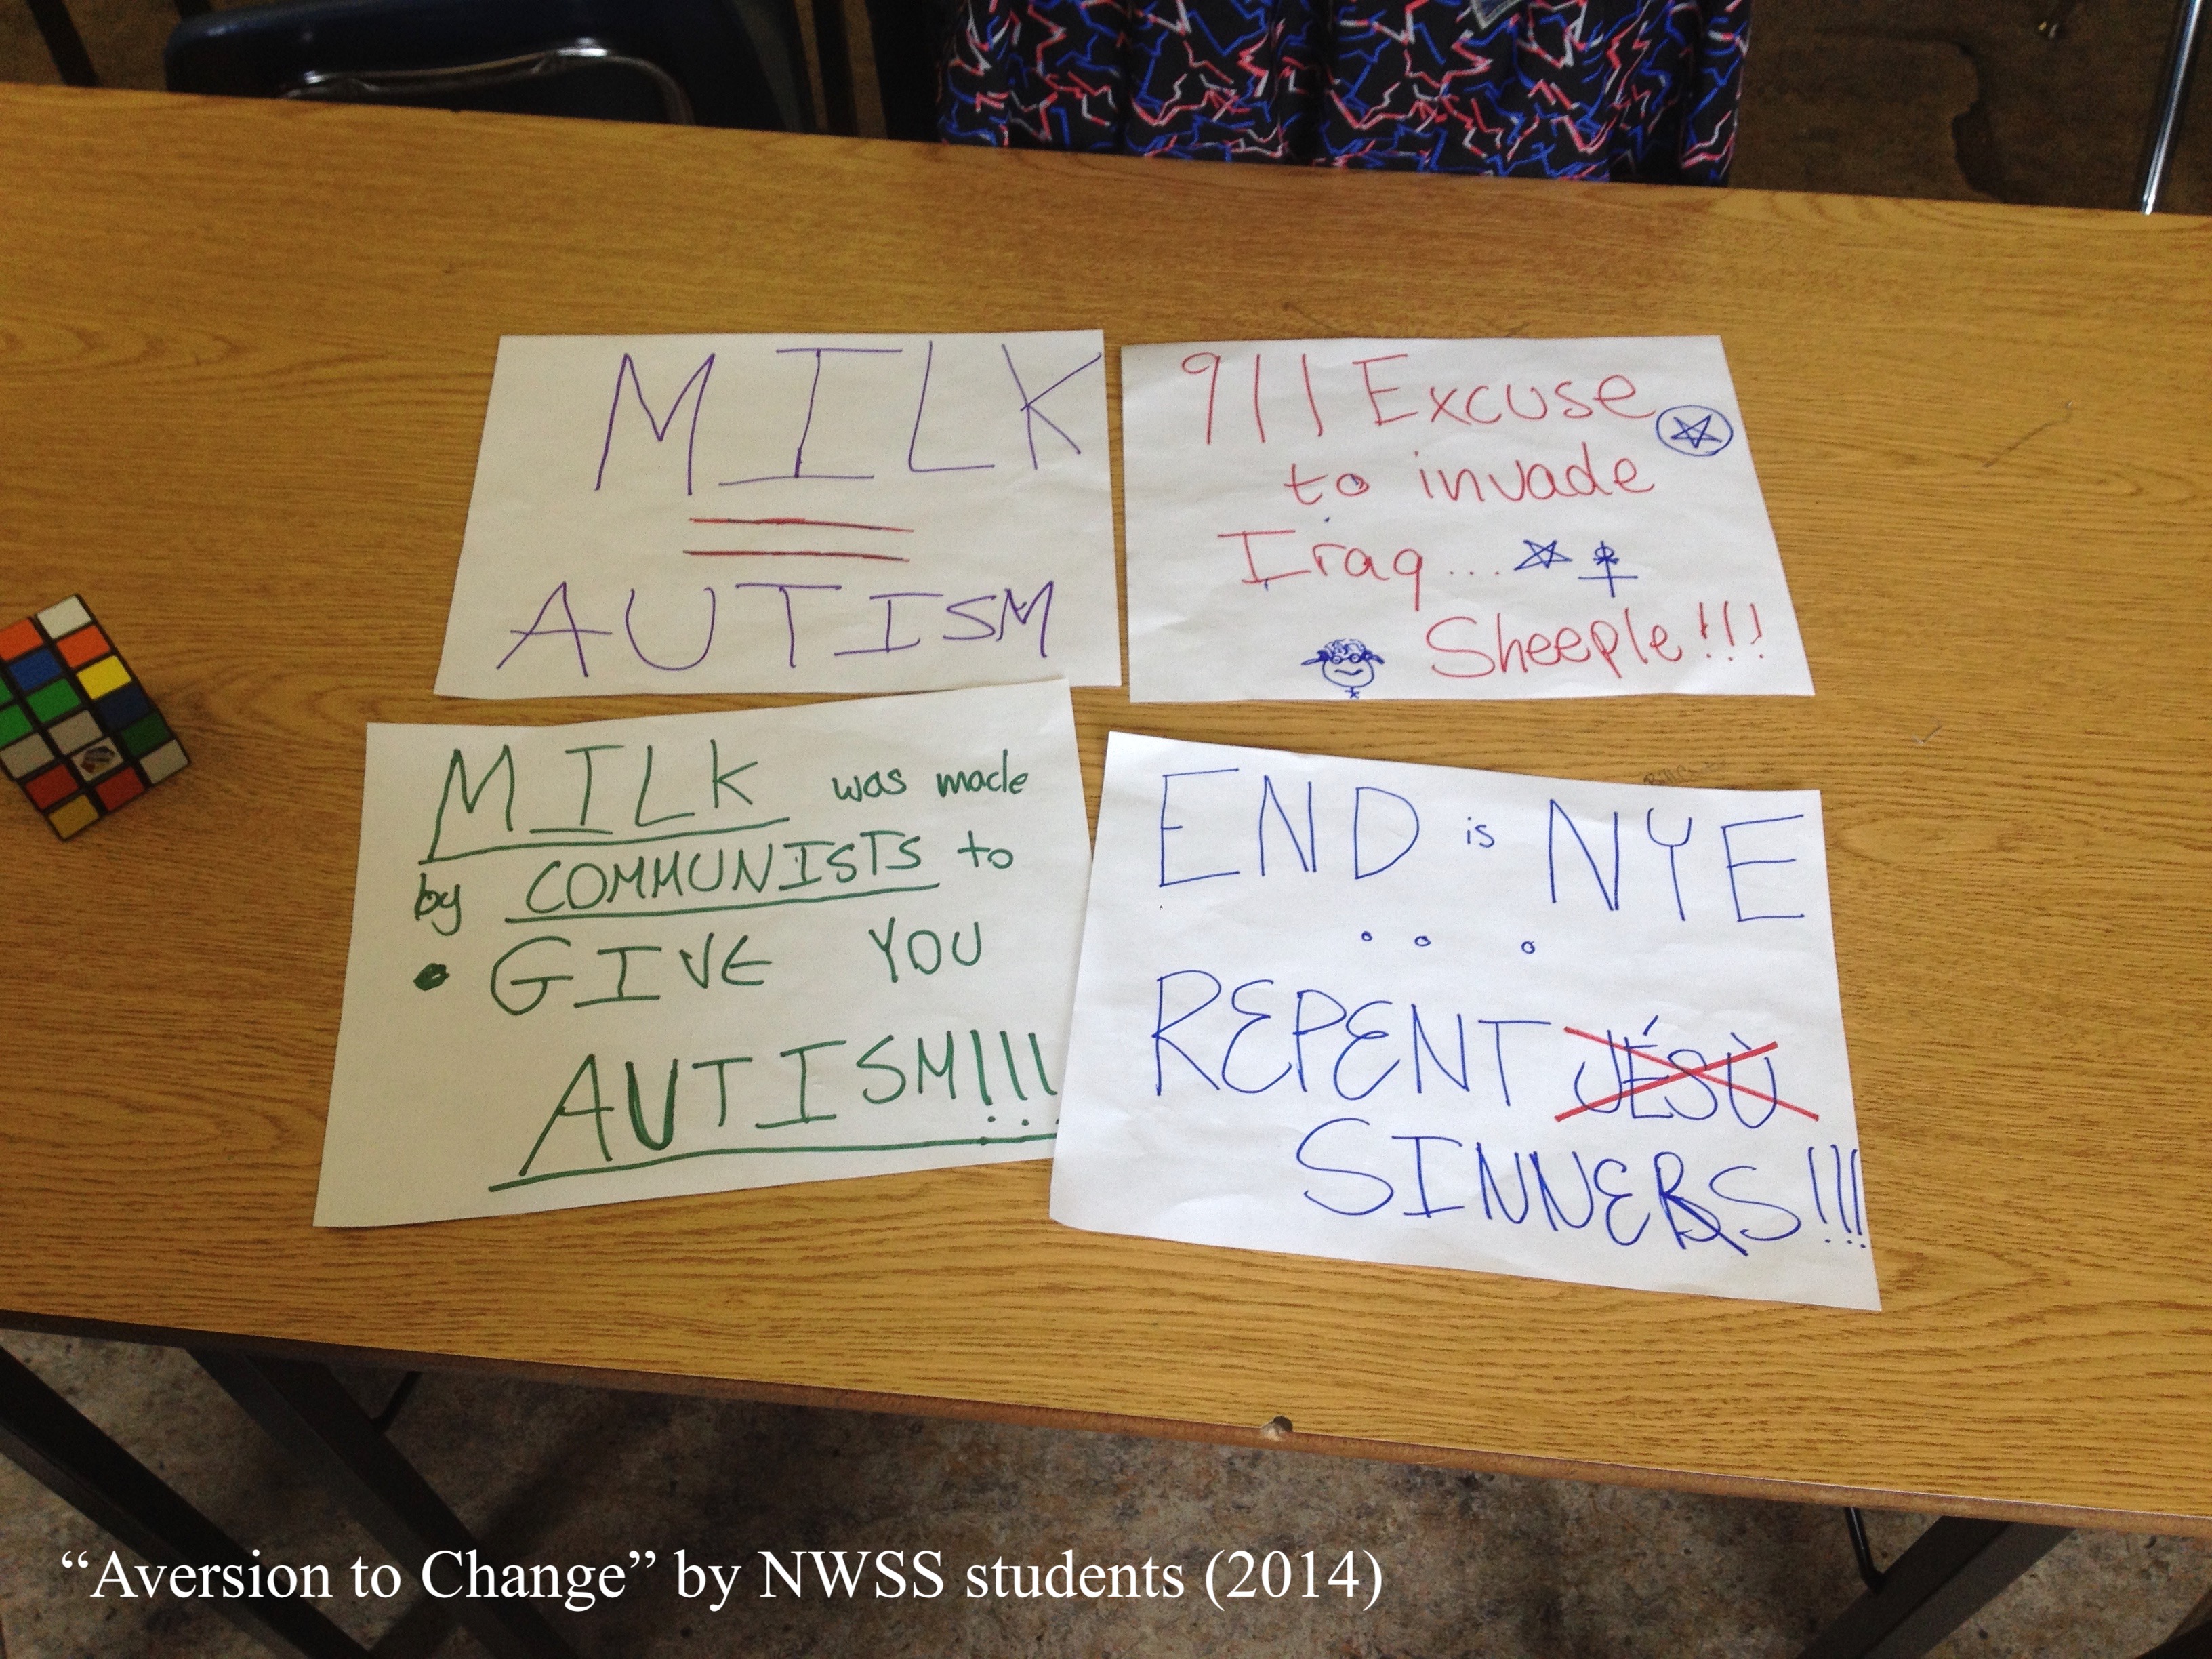 MILK
=
AUTISM
911 Excuse
to invade
Iraq...
Sheeple!!!
MILK was made
by COMMUNISTS to
• GIVE YOU
AUTISM!!!
END is NYE
...
REPENT JÉSÙ
SINNERS!!!
“Aversion to Change” by NWSS students (2014)